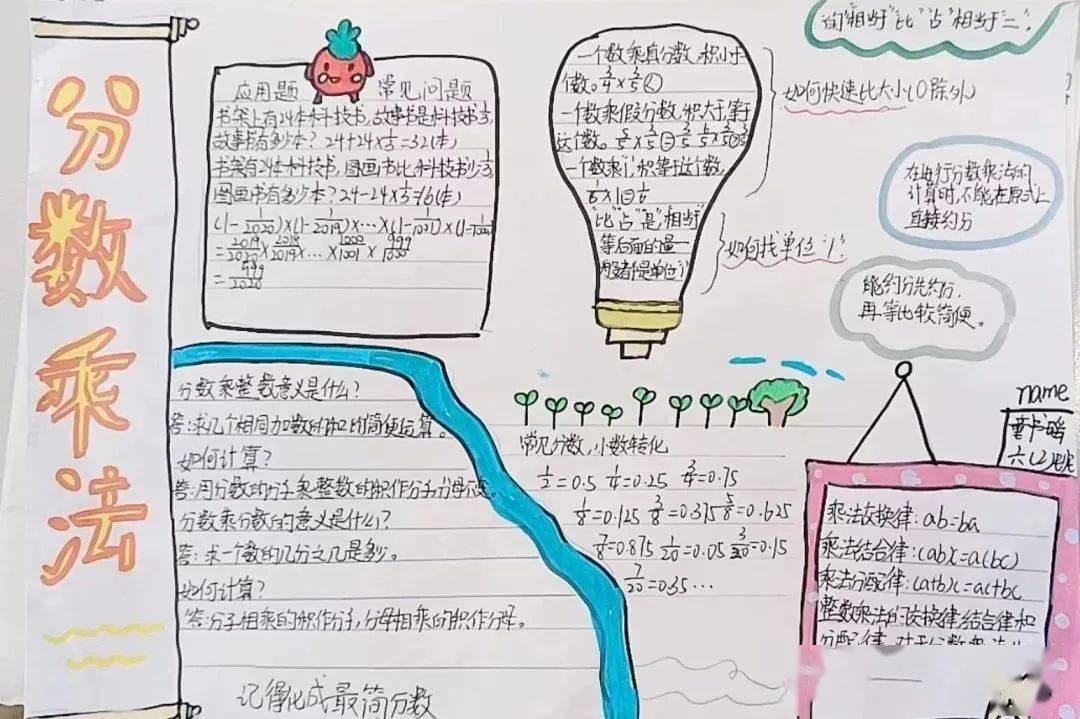 分数乘法
应用题 常见问题
书架上有24本科技书,故事书是科技书多1/3,
故事书有多少本? 24+24×1/3=32(本)
书架有24本科技书,图画书比科技书少1/3
图画书有多少本?24-24×1/3=16(本)
(1-1/2020)×(1-1/2019)×…×(1-1/1001)×(1-1/1000)
=2019/2020×2018/2019×…×1000/1001×999/1000
=999/2020
一个数乘真分数,积小于
一个数乘假分数,积大于,等于
这个数。
一个数乘1,积等于这个数,
1/6×1=1/6
"比""占""是""相当于"
等后面的量一
内容都是单位"1"
如何快速比大小(0除外)
如何找单位"1"?
"比""占""相当于"
在进行分数乘法的
计算时,不能在原式上
直接约分
能约分先约分,
再等比较简便。
分数乘整数意义是什么?
答:求几个相同加数的和的简便运算。
如何计算?
答:用分数的分子乘整数的积作分子,分母不变。
分数乘分数的意义是什么?
答:求一个数的几分之几是多少。
如何计算?
答:分子相乘的积作分子,分母相乘的积作分母。
记得化成最简分数
常见分数,小数转化
1/2=0.5 1/4=0.25 3/4=0.75
1/8=0.125 3/8=0.375 5/8=0.625
7/8=0.875 1/20=0.05 3/20=0.15
7/20=0.35…
name
乘法交换律:ab=ba
乘法结合律:(ab)c=a(bc)
乘法分配律:(a+b)c=ac+bc
整数乘法的交换律,结合律和
分配律,对于分数乘法